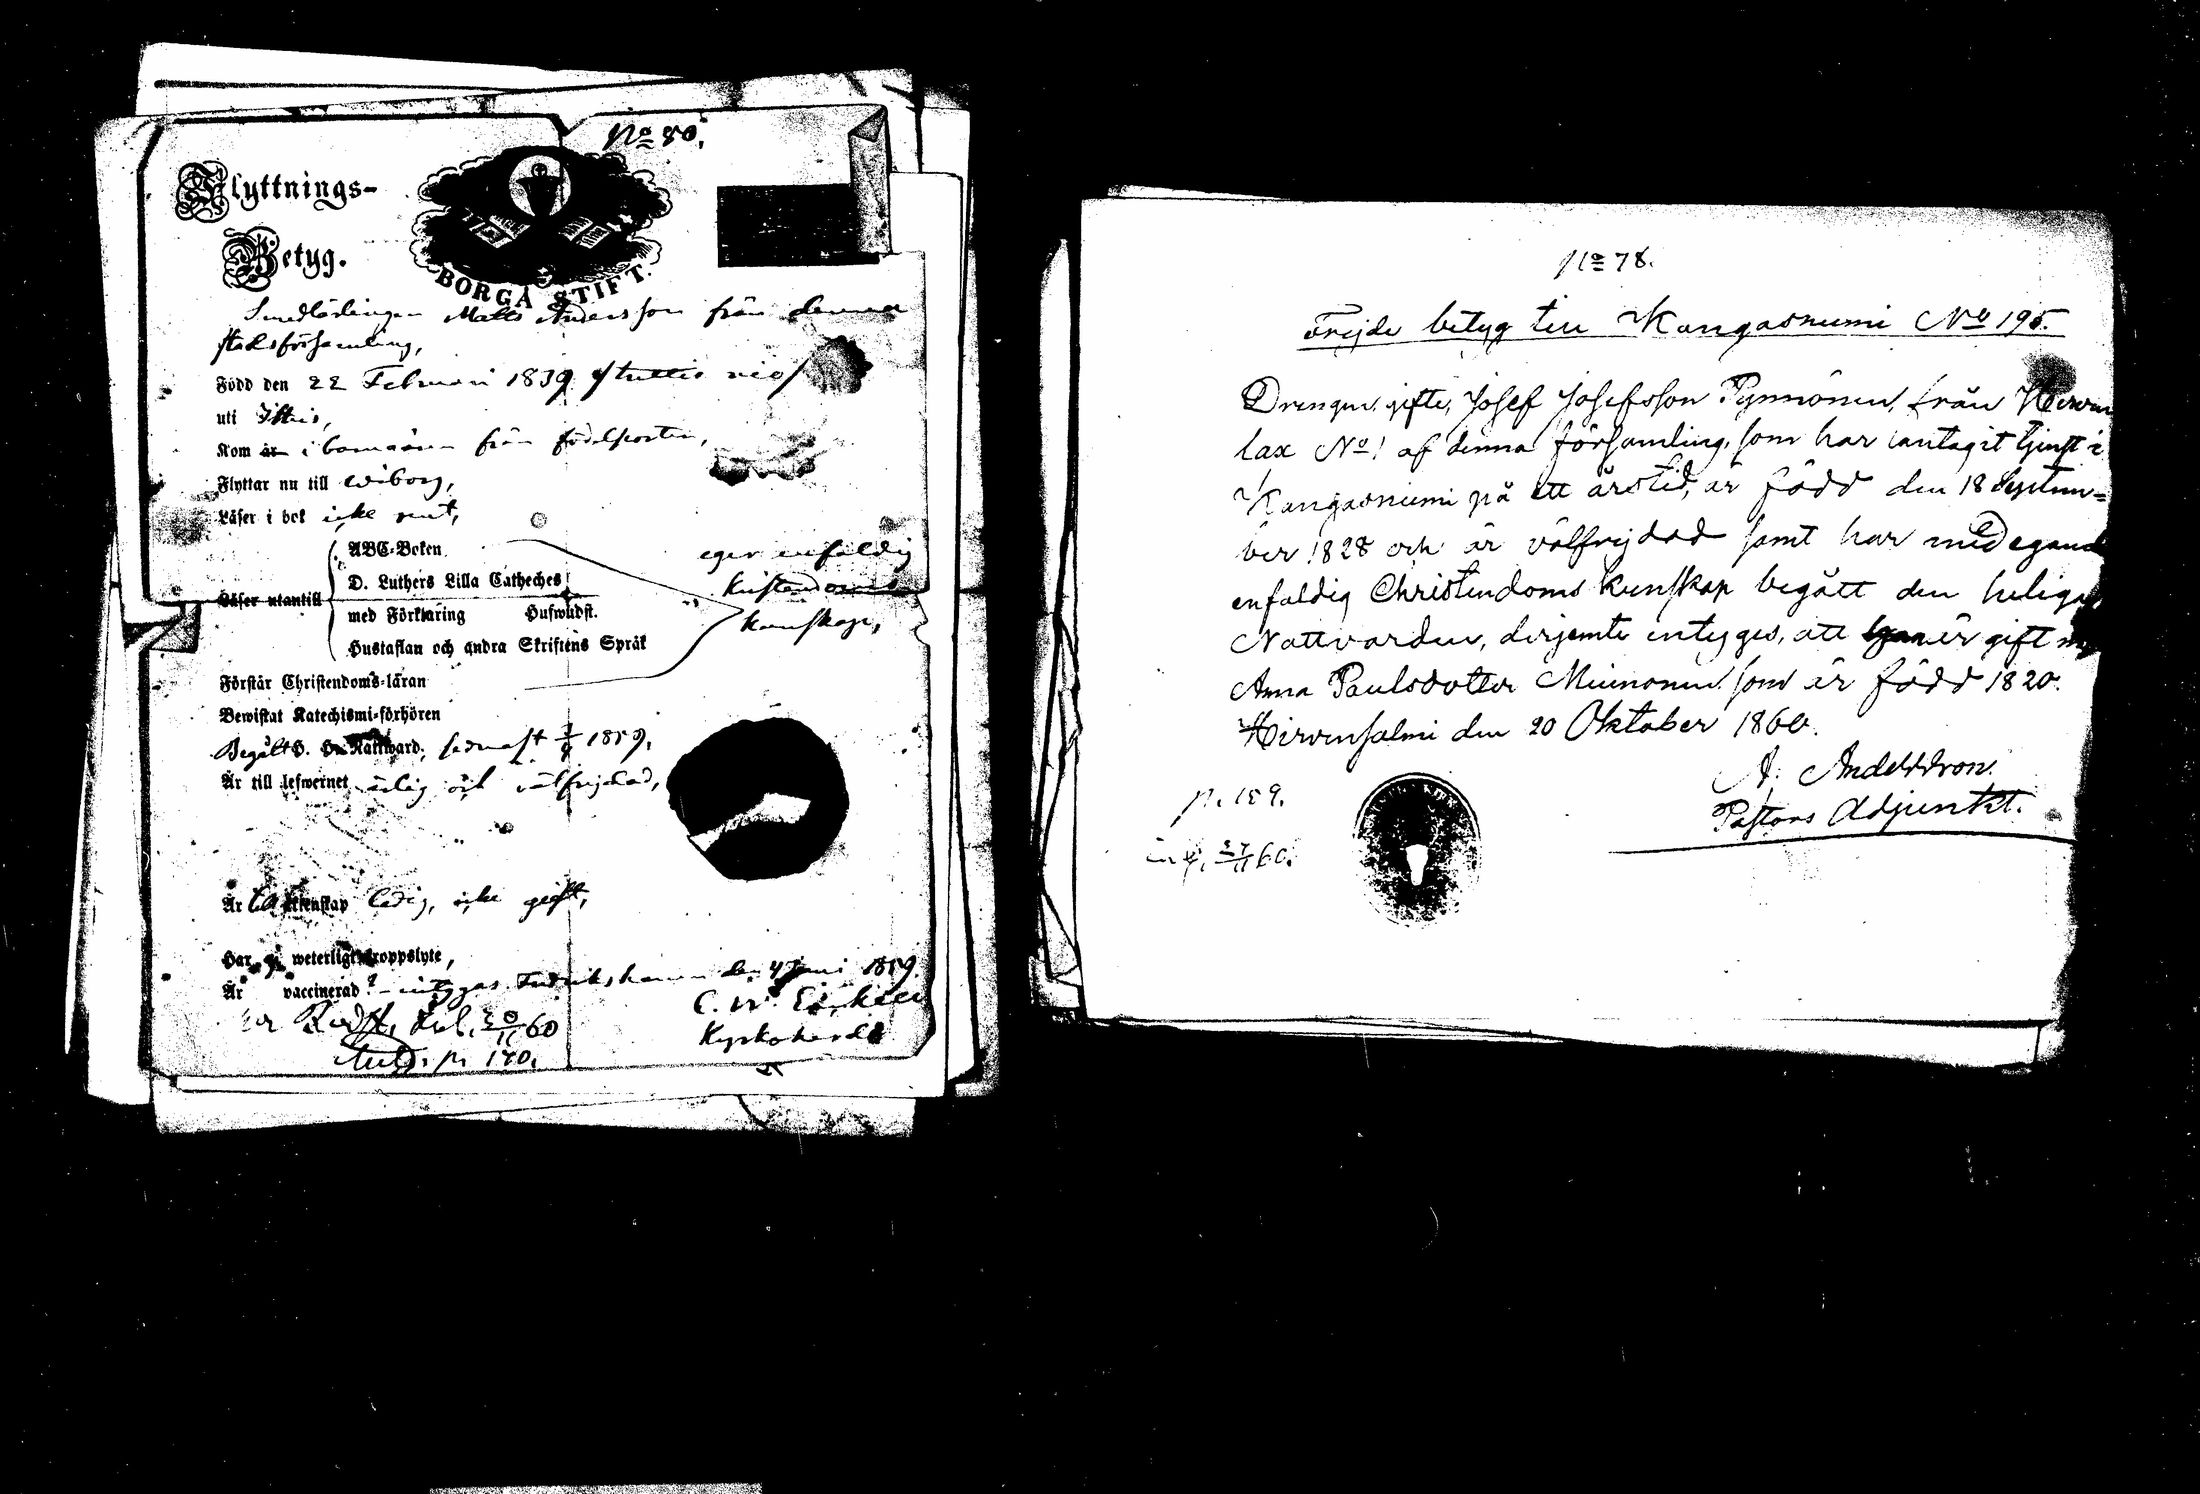 No 80.
Flyttnings-
Betyg.
BORGÅ STIFT.
Smedlärlingen Matts Andersson från denna
stadsförsamling,
Född den 22 Februari 1839 /trettio nio/
uti Ittis,
Kom år i barnaåren från födelseorten,
Flyttar nu till Wiborg,
Läser i bok icke rent,
ABC-Boken
D. Luthers Lilla Catheches
Läser utantill
med Förklaring Husw&dst.
Hustaflan och andra Skriftens Språk
eger enfaldig
kristendoms
kunskap,
Förstår Christendoms-läran
Bewistat Katechismi-förhören
Begått H. H. Nattward, sednast 1859,
Är till lefwernet ärlig och välfrejdad,
Är till äktenskap ledig, icke gift,
Har ej weterligt kroppslyte,
Är vaccinerad? - intygas Fredrikshamn den 4 Juni 1859.
C. W.
Kyrkoherde
60
p. 170.
No 78.
Frejde betyg till Kangasniemi No 195.
Drengen, gifte, Josef Josefsson Pynnönen, från Hirven
lax No 1 af denna församling, som har antagit tjenst i
Kangasniemi på ett årstid, är född den 18 Septem=
ber 1828 och är välfrejdad samt har med egande
enfaldig Christendoms kunskap begått den heliga
Nattvarden, derjemte intygas, att han är gift med
Anna Paulsdotter Miinonen som är född 1820.
Hirvensalmi den 20 Oktober 1860.
A. Andersson.
Pastors Adjunkt.
p. 159.
ing. 27/11 60.